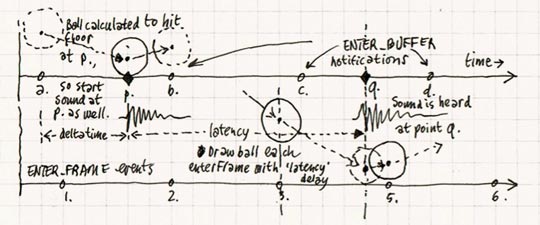 Ball calculated to hit
floor
at p.,
ENTER_BUFFER
notifications
time→
a.
p.
b.
c.
q.
d.
so start
sound at
p. as well.
Sound is heard
at point q.
deltatime
latency
Draw ball each
enterFrame with 'latency'
delay
ENTER_FRAME events
1.
2.
3.
5.
6.